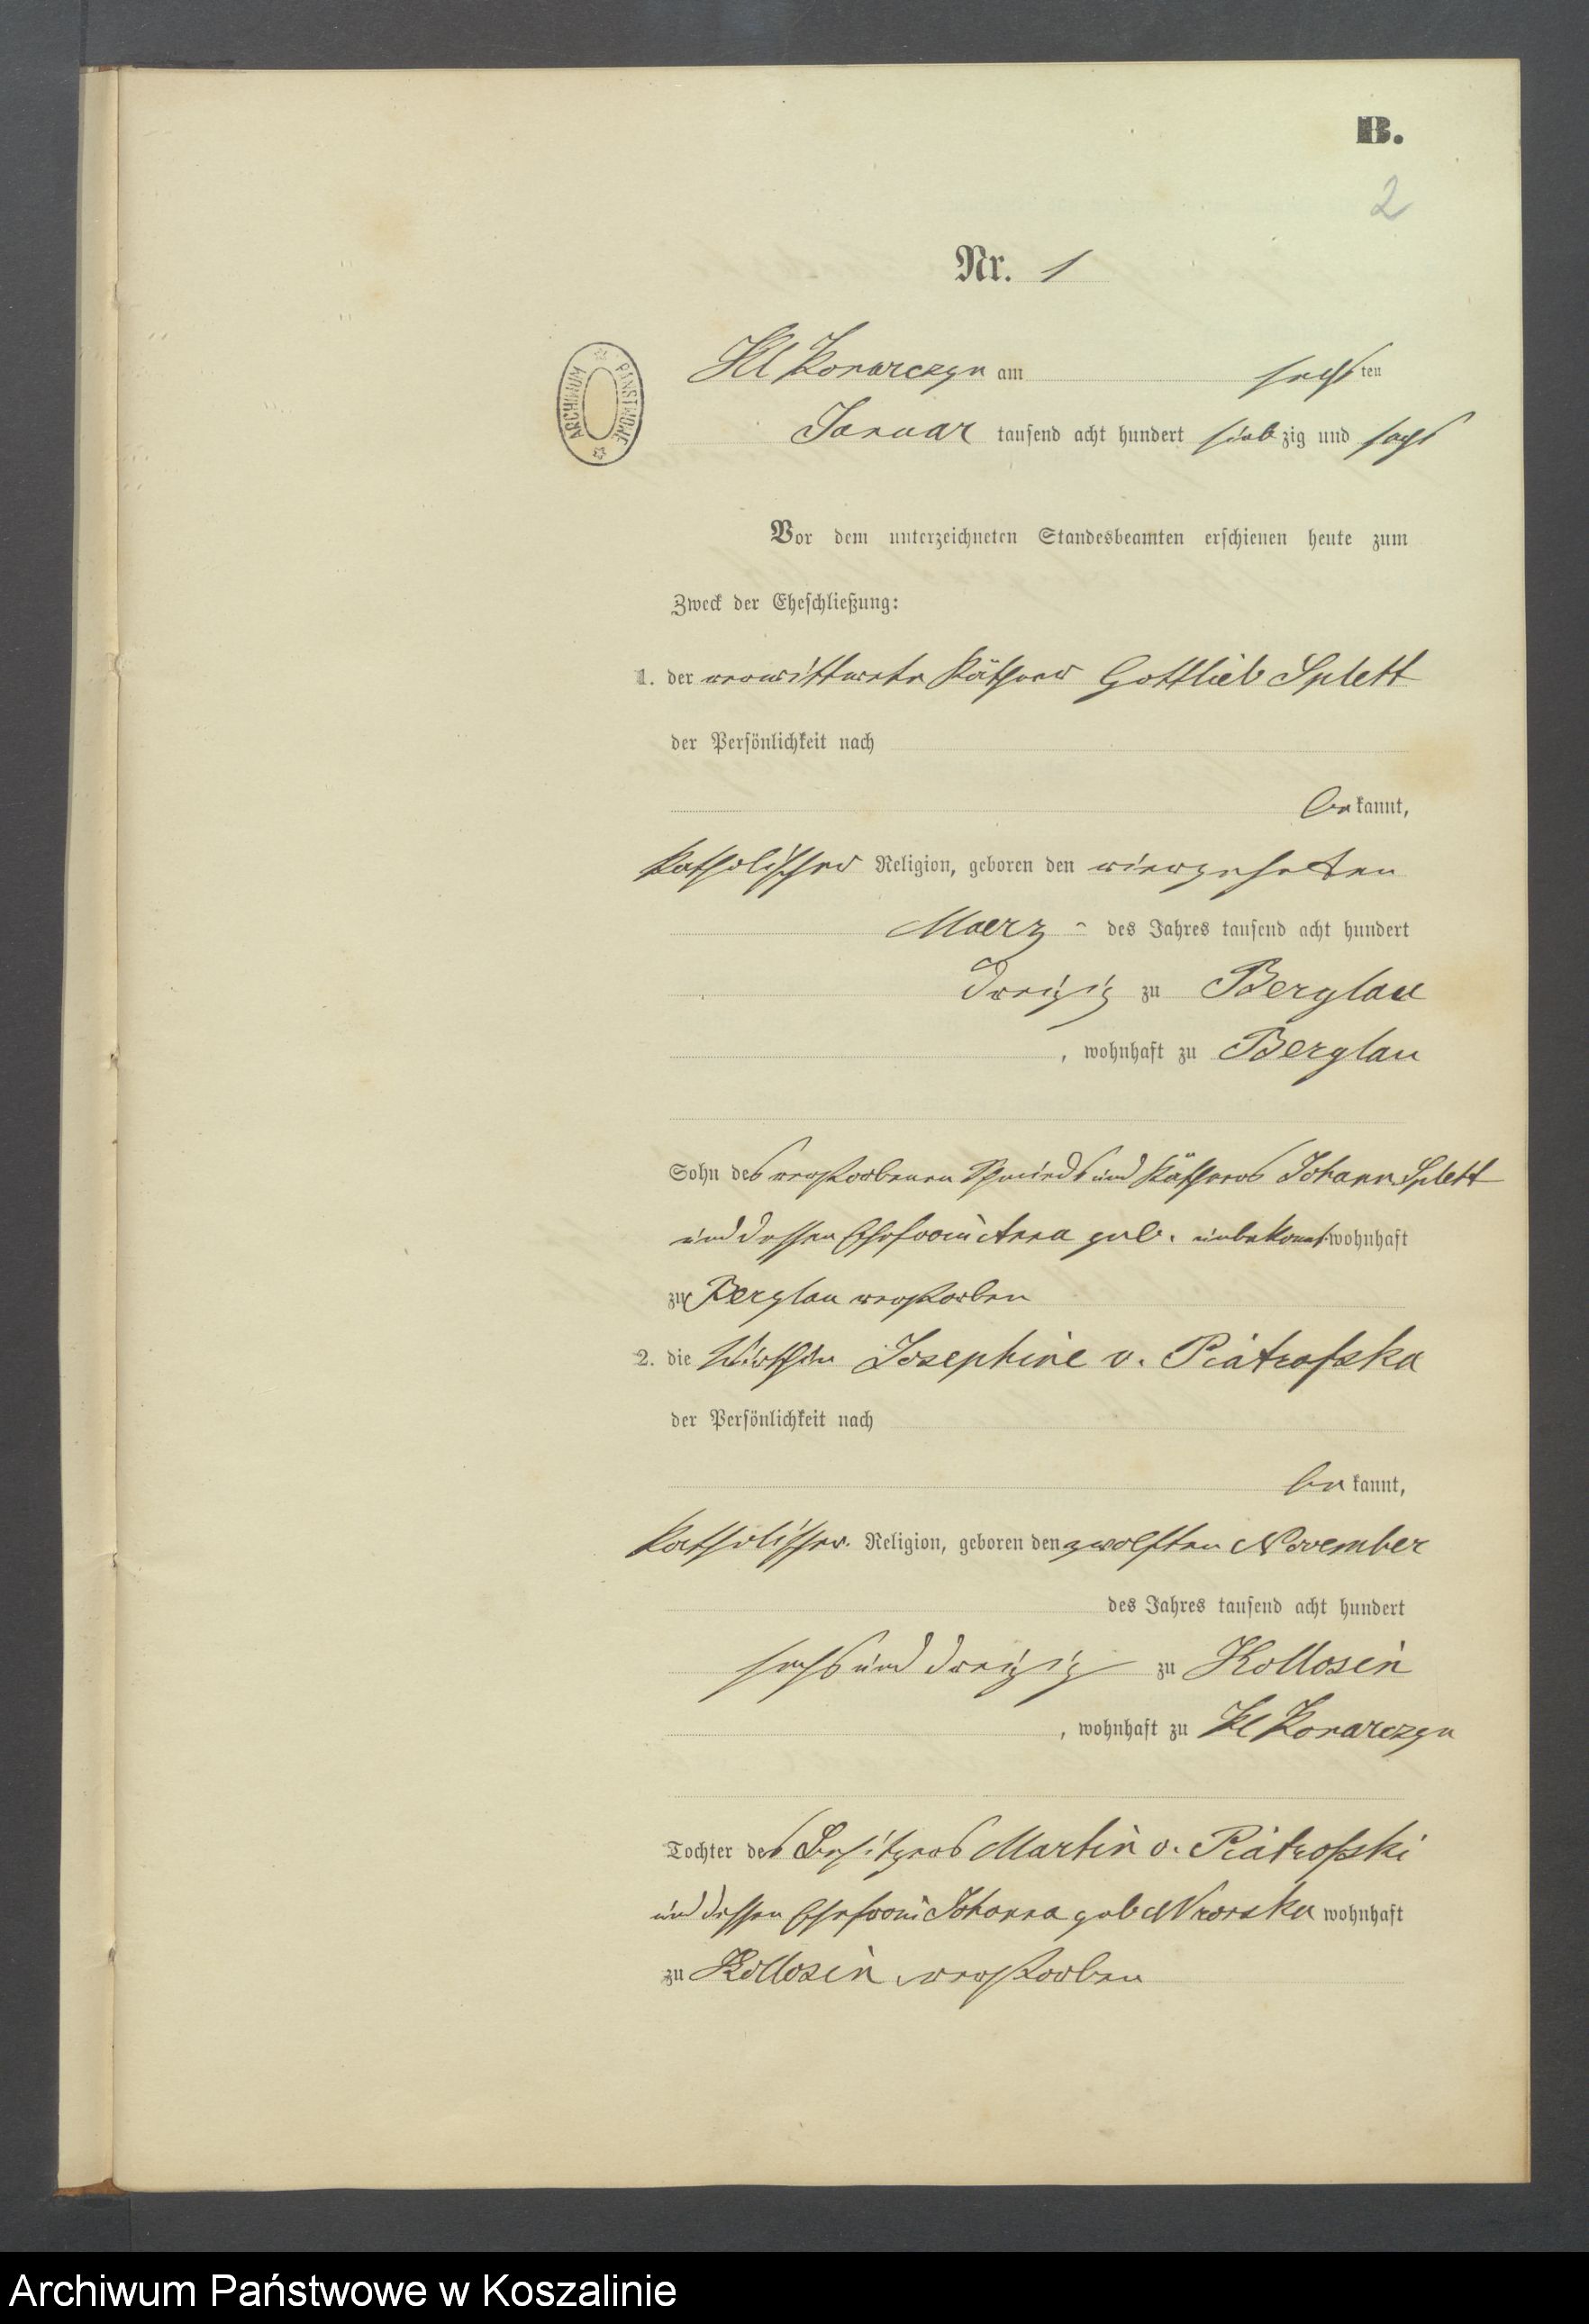 B.
2
Nr. 1
ARCHIWUM PAŃSTWOWE
Kl Konarczyn am sechsten
Januar tausend acht hundert siebzig und sechs
Vor dem unterzeichneten Standesbeamten erschienen heute zum
Zweck der Eheschließung:
1. der verwittwete Käthner Gottlieb Splett
der Persönlichkeit nach
bekannt,
katholischer Religion, geboren den vierzehnten
Maerz des Jahres tausend acht hundert
dreizig zu Berglau
, wohnhaft zu Berglau
Sohn des verstorbenen Schmieds und Käthners Johann Splett
und dessen Ehefrau Anna geb. unbekannt wohnhaft
zu Berglau verstorben
2. die Wirthin Josephine v. Piatrofska
der Persönlichkeit nach
bekannt,
katholischer Religion, geboren den zwolften November
des Jahres tausend acht hundert
sechs und dreizig zu Kollosin
, wohnhaft zu Kl Konarczyn
Tochter des Besitzers Martin v. Piatrofski
und dessen Ehefrau Johanna geb wohnhaft
zu Kollosin verstorben
Archiwum Państwowe w Koszalinie